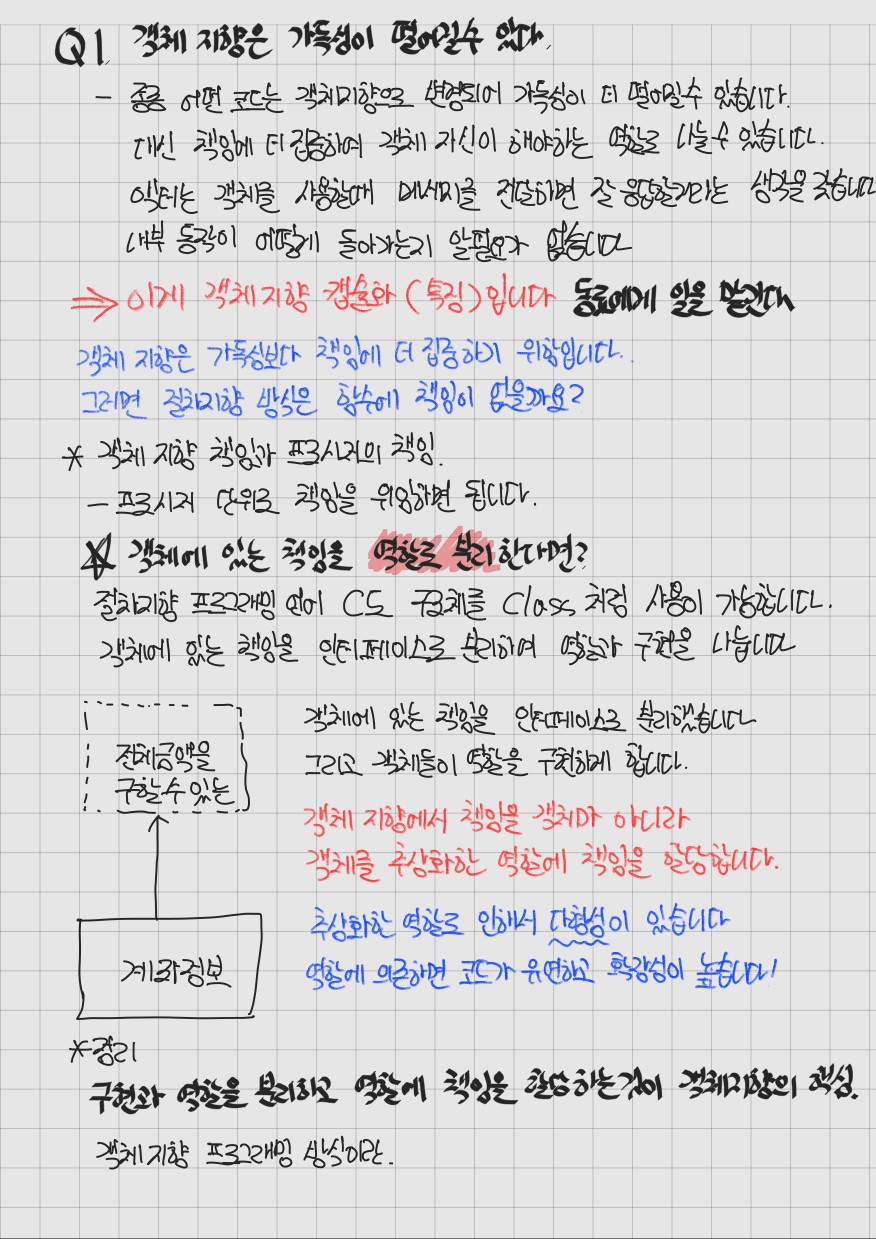 Q1. 객체 지향은 가독성이 떨어질수 있다.
- 종종 어떤 코드는 객체지향으로 변경되어 가독성이 더 떨어질수 있습니다.
대신 책임에 더 집중하여 객체 자신이 해야하는 역할로 나눌수 있습니다.
액터는 객체를 사용할때 메세지를 전달하면 잘 응답할거라는 생각을 갖습니다
내부 동작이 어떻게 돌아가는지 알필요가 없습니다
⇒ 이게 객체 지향 캡슐화 (특징) 입니다 동료에게 일을 맡긴다
객체 지향은 가독성보다 책임에 더 집중하기 위함입니다..
그러면 절차지향 방식은 함수에 책임이 없을까요?
* 객체 지향 책임과 프로시저의 책임.
- 프로시저 단위로 책임을 위임하면 됩니다.
☆ 객체에 있는 책임을 역할로 분리한다면?
절차지향 프로그래밍 언어 C도 구조체를 Class 처럼 사용이 가능합니다.
객체에 있는 책임을 인터페이스로 분리하여 역할과 구현을 나눕니다
전체금액을
구할수 있는
계좌정보
객체에 있는 책임을 인터페이스로 분리했습니다
그리고 객체들이 역할을 구현하게 합니다.
객체 지향에서 책임을 객체가 아니라
객체를 추상화한 역할에 책임을 할당합니다.
추상화한 역할로 인해서 다형성이 있습니다
역할에 의존하면 코드가 유연하고 확장성이 높습니다!
* 정리
구현과 역할을 분리하고 역할에 책임을 할당하는것이 객체지향의 핵심.
객체 지향 프로그래밍 방식이란.